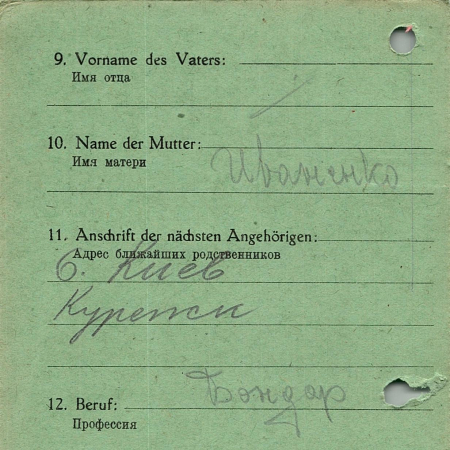 9. Vorname des Vaters:
Имя отца
10. Name der Mutter:
Имя матери
Иваненко
11. Anschrift der nächsten Angehörigen:
Адрес ближайших родственников
Киев
12. Beruf: Бондар
Профессия